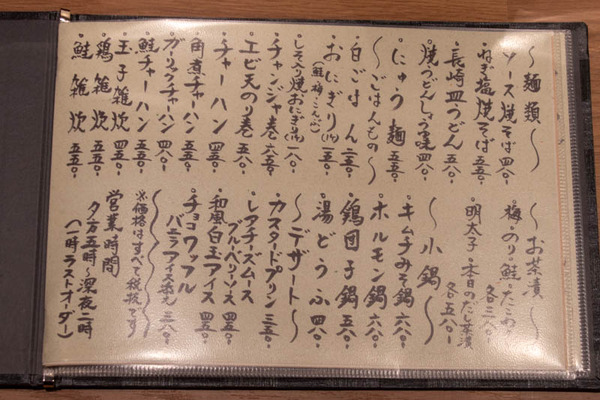 〜麺類〜
・ソース焼そば 四八〇
・ねぎ塩焼そば 五五〇
・長崎皿うどん 五八〇
・焼うどんしょうゆ味 四八〇
・にゅう麺 五五〇
〜ごはんもの〜
・白ごはん 二五〇
・おにぎり(1ケ) 一五〇
(鮭・梅・こんぶ)
・しそ入り焼おにぎり(1ケ) 一八〇
・チャンジャ巻 六五〇
・エビ天のり巻 五八〇
・チャーハン 四五〇
・角煮チャーハン 五五〇
・ガーリックチャーハン 四八〇
・鮭チャーハン 五五〇
・玉子雑炊 四五〇
・鶏雑炊 五五〇
・鮭雑炊 五五〇
〜お茶漬〜
・梅・のり・鮭・たこわさ
各三八〇
・明太子・本日のだし茶漬
各五八〇
〜小鍋〜
・キムチみそ鍋 六八〇
・ホルモン鍋 六八〇
・鶏団子鍋 五八〇
・湯どうふ 四八〇
〜デザート〜
・カスタードプリン 三五〇
・レアチーズムース
ブルーベリーソース 四五〇
・和風白玉アイス 四五〇
・チョコワッフル
バニラアイス添え 三八〇
※価格はすべて税抜です
営業時間
夕方五時〜深夜二時
(一時ラストオーダー)